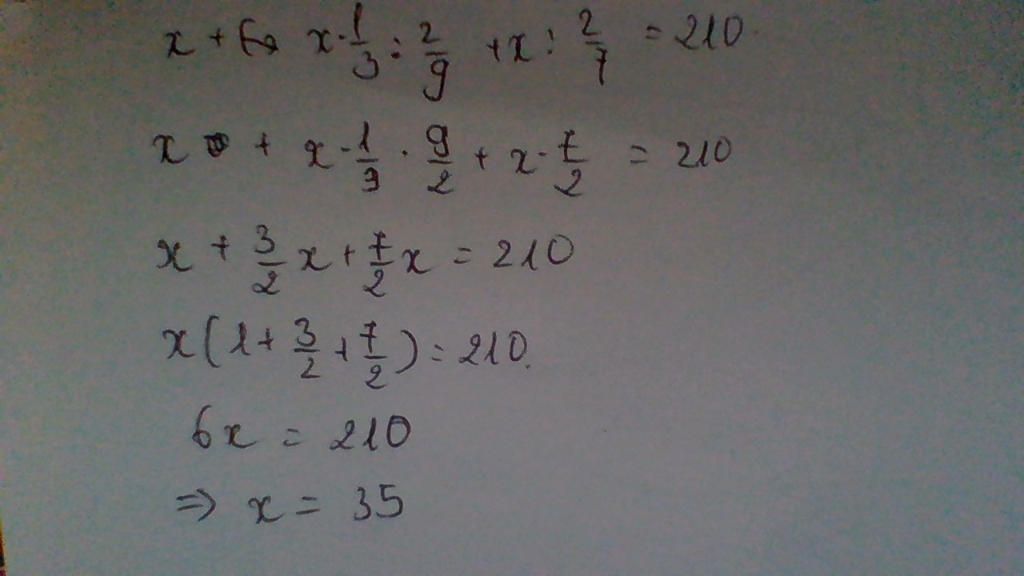 x + x · 1/3 : 2/9 + x : 2/7 = 210
x + x · 1/3 · 9/2 + x · 7/2 = 210
x + 3/2 x + 7/2 x = 210
x (1 + 3/2 + 7/2) = 210.
6x = 210
⇒ x = 35